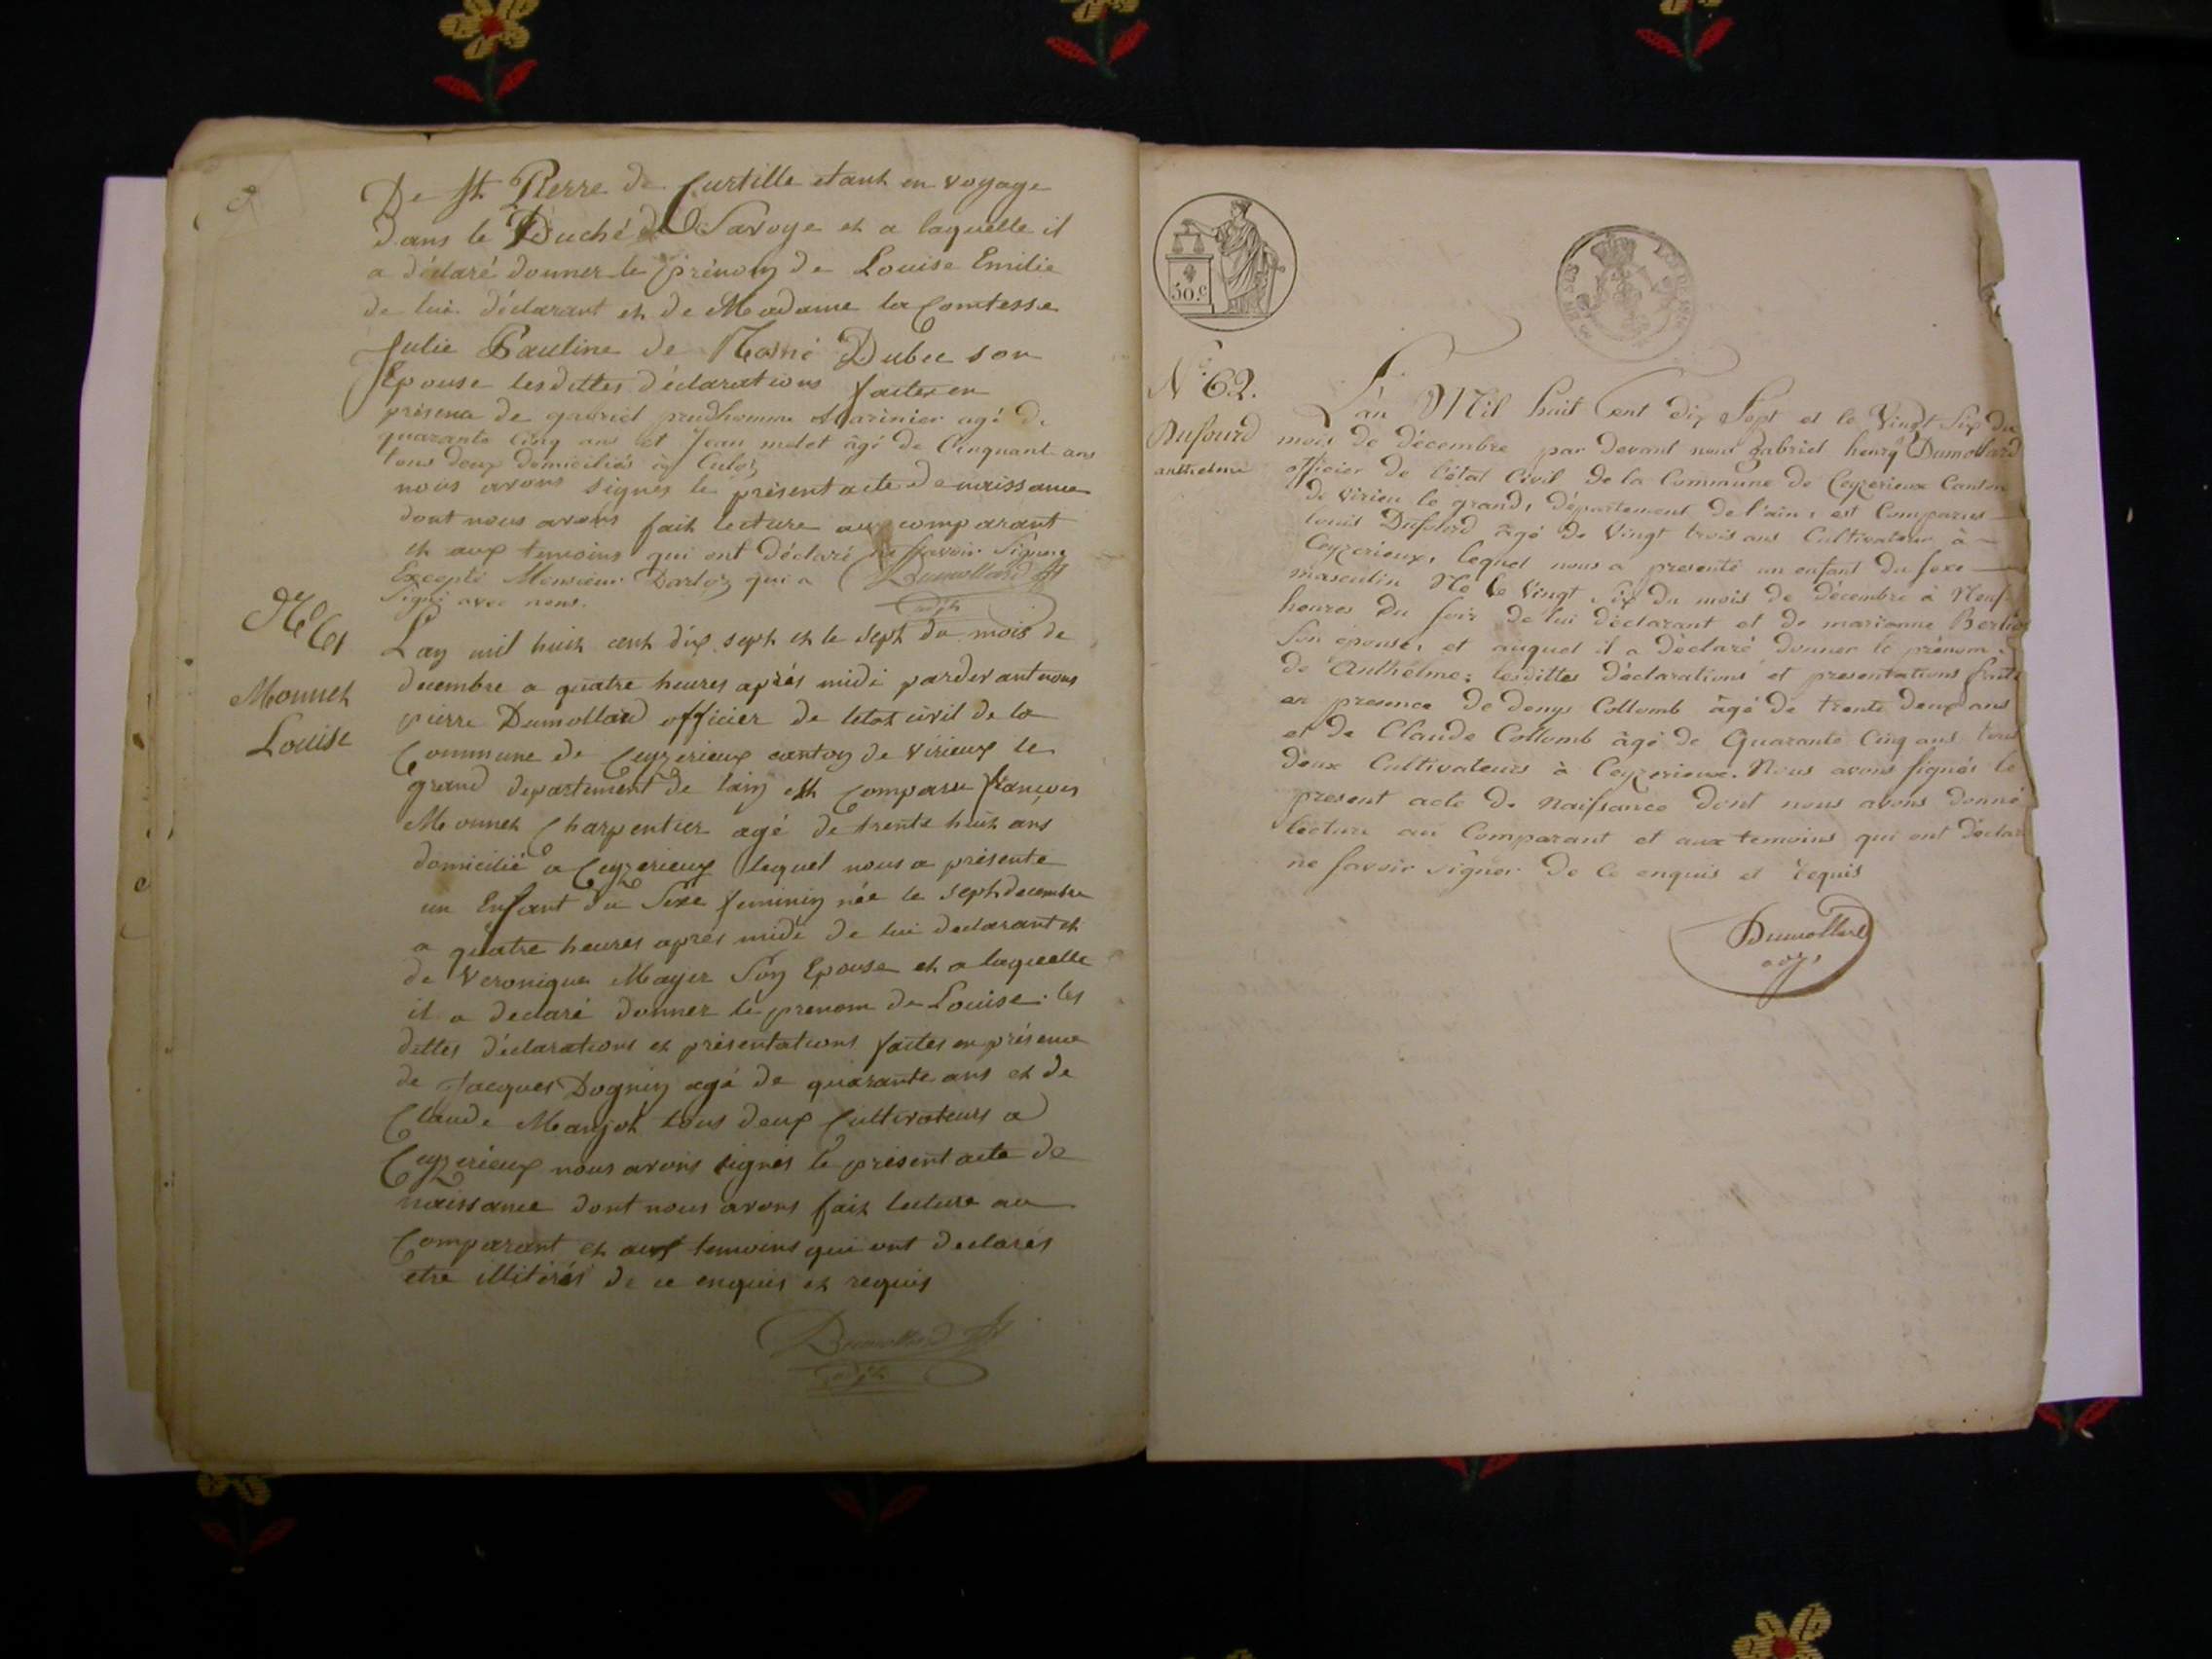 De St. Pierre de Curtille etant en voyage
dans le Duché de Savoye et a laquelle il
a déclaré donner le prénom de Louise Emilie
de lui déclarant et de Madame la Comtesse
Julie Pauline de Dubec son
Epouse lesdittes déclarations faites en
présence de gabriel prudhomme Marinier agé de
quarante Cinq ans et Jean molet âgé de Cinquant ans
tous deux domiciliés à Culoz
nous avons signés le présent acte de naissance
dont nous avons fait lecture au comparant
et aux temoins qui ont déclaré ne savoir Signer
Excepté Monsieur qui a
signé avec nous.
Dumollard
adjt
No 61
Monnet
Louise
Lan mil huit cent dix sept et le sept du mois de
decembre a quatre heures aprés midi pardevant nous
pierre Dumollard officier de letat civil de la
Commune de Ceyzerieux canton de Virieux le
grand departement de lain est comparu françois
Monnet Charpentier agé de trente huit ans
domicilié a Ceyzerieux lequel nous a présenté
un Enfant du Sexe feminin née le sept decembre
a quatre heures aprés midi de lui declarant et
de Veronique Mayer Son Epouse et a laquelle
il a declaré donner le prenom de Louise. les
dittes déclarations et présentations faites en présence
de Jacques Dognin agé de quarante ans et de
Claude Marjot tous deux Cultivateurs a
Ceyzerieux nous avons signés le présent acte de
naissance dont nous avons fait lecture au
Comparant et aux temoins qui ont declarés
etre illitérés de ce enquis et requis
Dumollard
adjt
50.c
No. 62.
Dufourd
anthelme
L'an Mil huit Cent dix Sept et le Vingt Six du
mois de décembre par devant nous gabriel henry Dumollard
officier de l'état Civil de la Commune de Ceyzerieux Canton
de virieu le grand, département de l'ain, est Comparus
louis Dufourd âgé de Vingt trois ans Cultivateur à
Ceyzerieux, lequel nous a presenté un enfant du sexe
masculin Né le Vingt Six du mois de décembre à Neuf
heures du soir de lui déclarant et de marianne
son épouse, et auquel il a déclaré donner le prénom
de Anthelme; lesdittes déclarations et presentations faite
en presence de denys Collomb âgé de trente deux ans
et de Claude Collomb âgé de Quarante Cinq ans tous
deux Cultivateurs à Ceyzerieux. Nous avons signés le
present acte de Naissance dont nous avons donné
lecture au Comparant et aux temoins qui ont déclaré
ne savoir signer de Ce enquis et requis
Dumollard